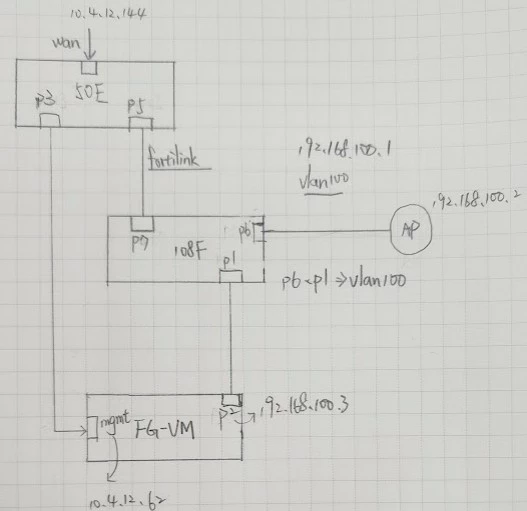 10.4.12.144
wan
50E
p3
p5
fortilink
192.168.100.1
vlan100
192.168.100.2
AP
p7
108F
p6
p1
p6~p1⇒vlan100
mgmt
FG-VM
p2
192.168.100.3
10.4.12.62